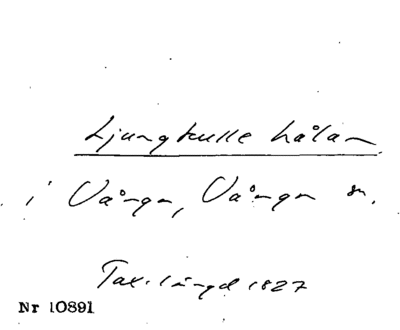 Ljungkulle hålan
i Vånga, Vånga sn.
Tax.längd 1827
Nr 10891